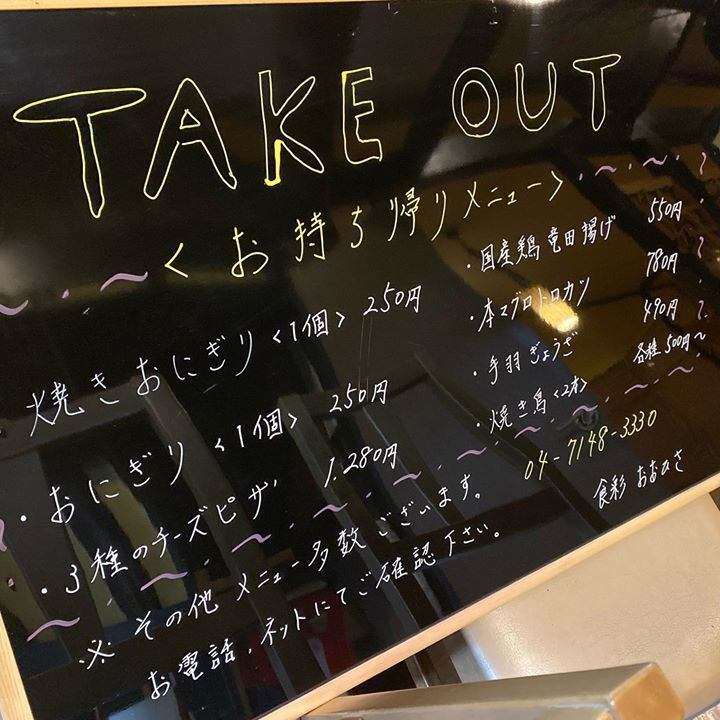 TAKE OUT
<お持ち帰りメニュー>
・焼きおにぎり<1個> 250円
・おにぎり<1個> 250円
・3種のチーズピザ 1.280円
・国産鶏竜田揚げ 550円
・本マグロトロカツ 780円
・手羽ぎょうざ 490円
・焼き鳥<2本> 各種500円〜
04-7148-3330
食彩 おおひさ
※その他メニュー多数ございます。
お電話・ネットにてご確認下さい。